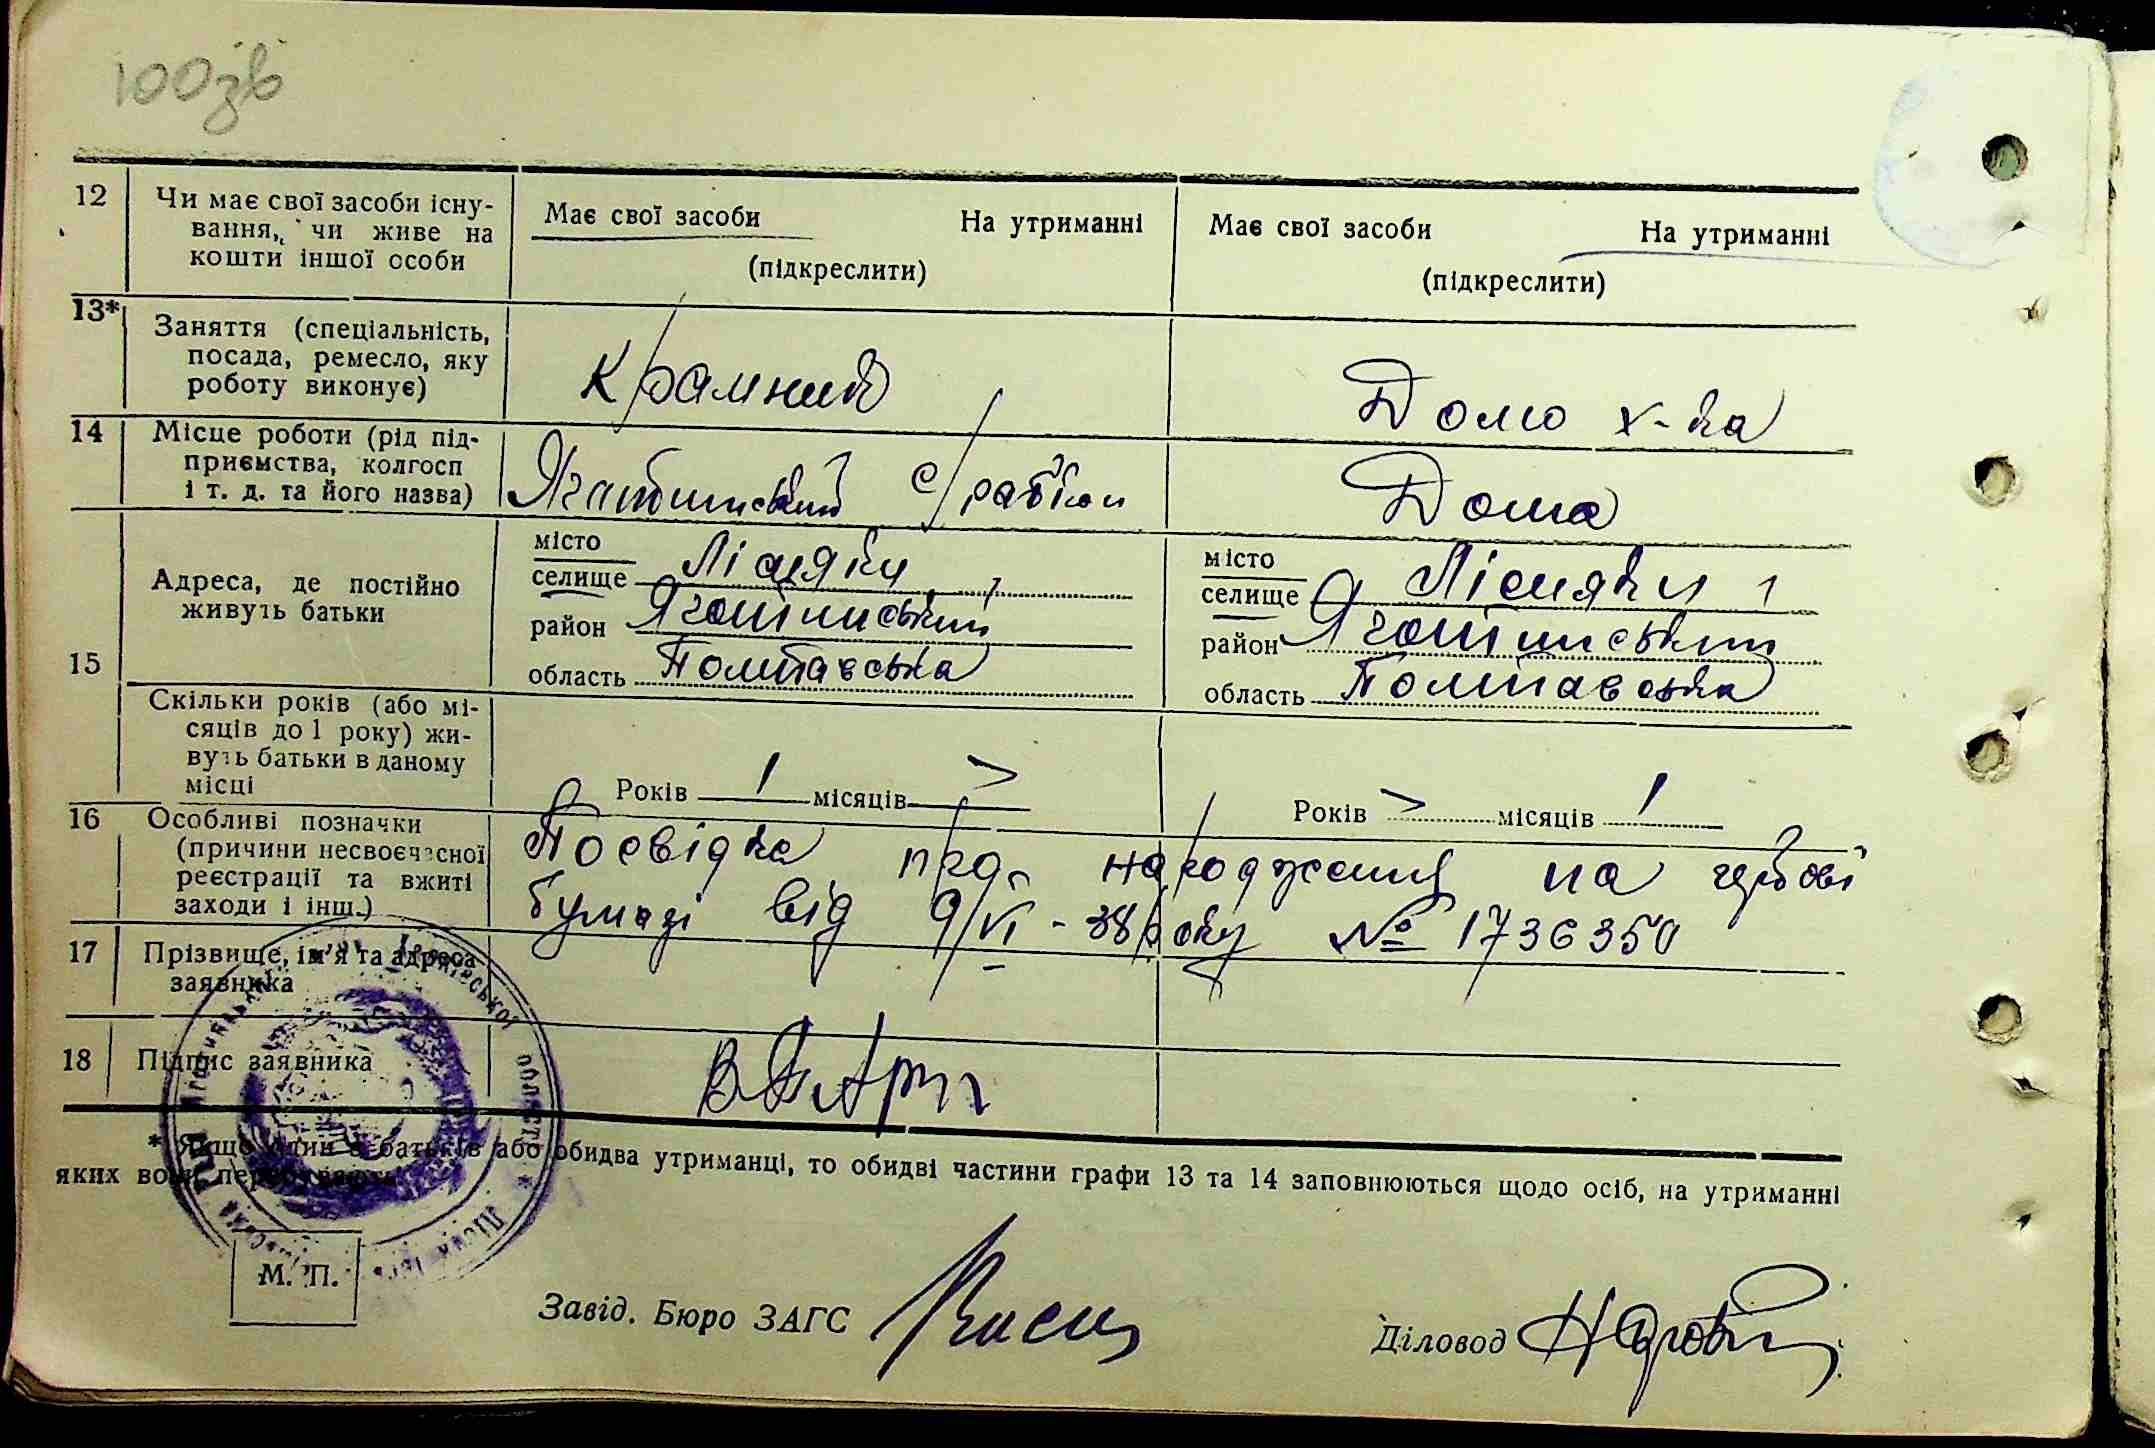 100зв
12 Чи має свої засоби існу-
вання, чи живе на
кошти іншої особи
Має свої засоби На утриманні
(підкреслити)
Має свої засоби На утриманні
(підкреслити)
13* Заняття (спеціальність,
посада, ремесло, яку
роботу виконує)
Крамний
Домо х-ка
14 Місце роботи (рід під-
приємства, колгосп
і т. д. та його назва)
с/
Дома
15 Адреса, де постійно
живуть батьки
місто
селище Лісняки
район Яготинський
область Полтавська
місто
селище Лісняки
район Яготинський
область Полтавська
Скільки років (або мі-
сяців до 1 року) жи-
вуть батьки в даному
місці
Років 1 місяців >
Років > місяців 1
16 Особливі позначки
(причини несвоєчасної
реєстрації та вжиті
заходи і інш.)
Посвідка про народження на
бумазі від 9/VI - 38 року № 1736350
17 Прізвище, ім'я та адреса
заявника
18 Підпис заявника
* Якщо один з батьків або обидва утриманці, то обидві частини графи 13 та 14 заповнюються щодо осіб, на утриманні
яких вони перебувають
М. П.
Завід. Бюро ЗАГС
Діловод